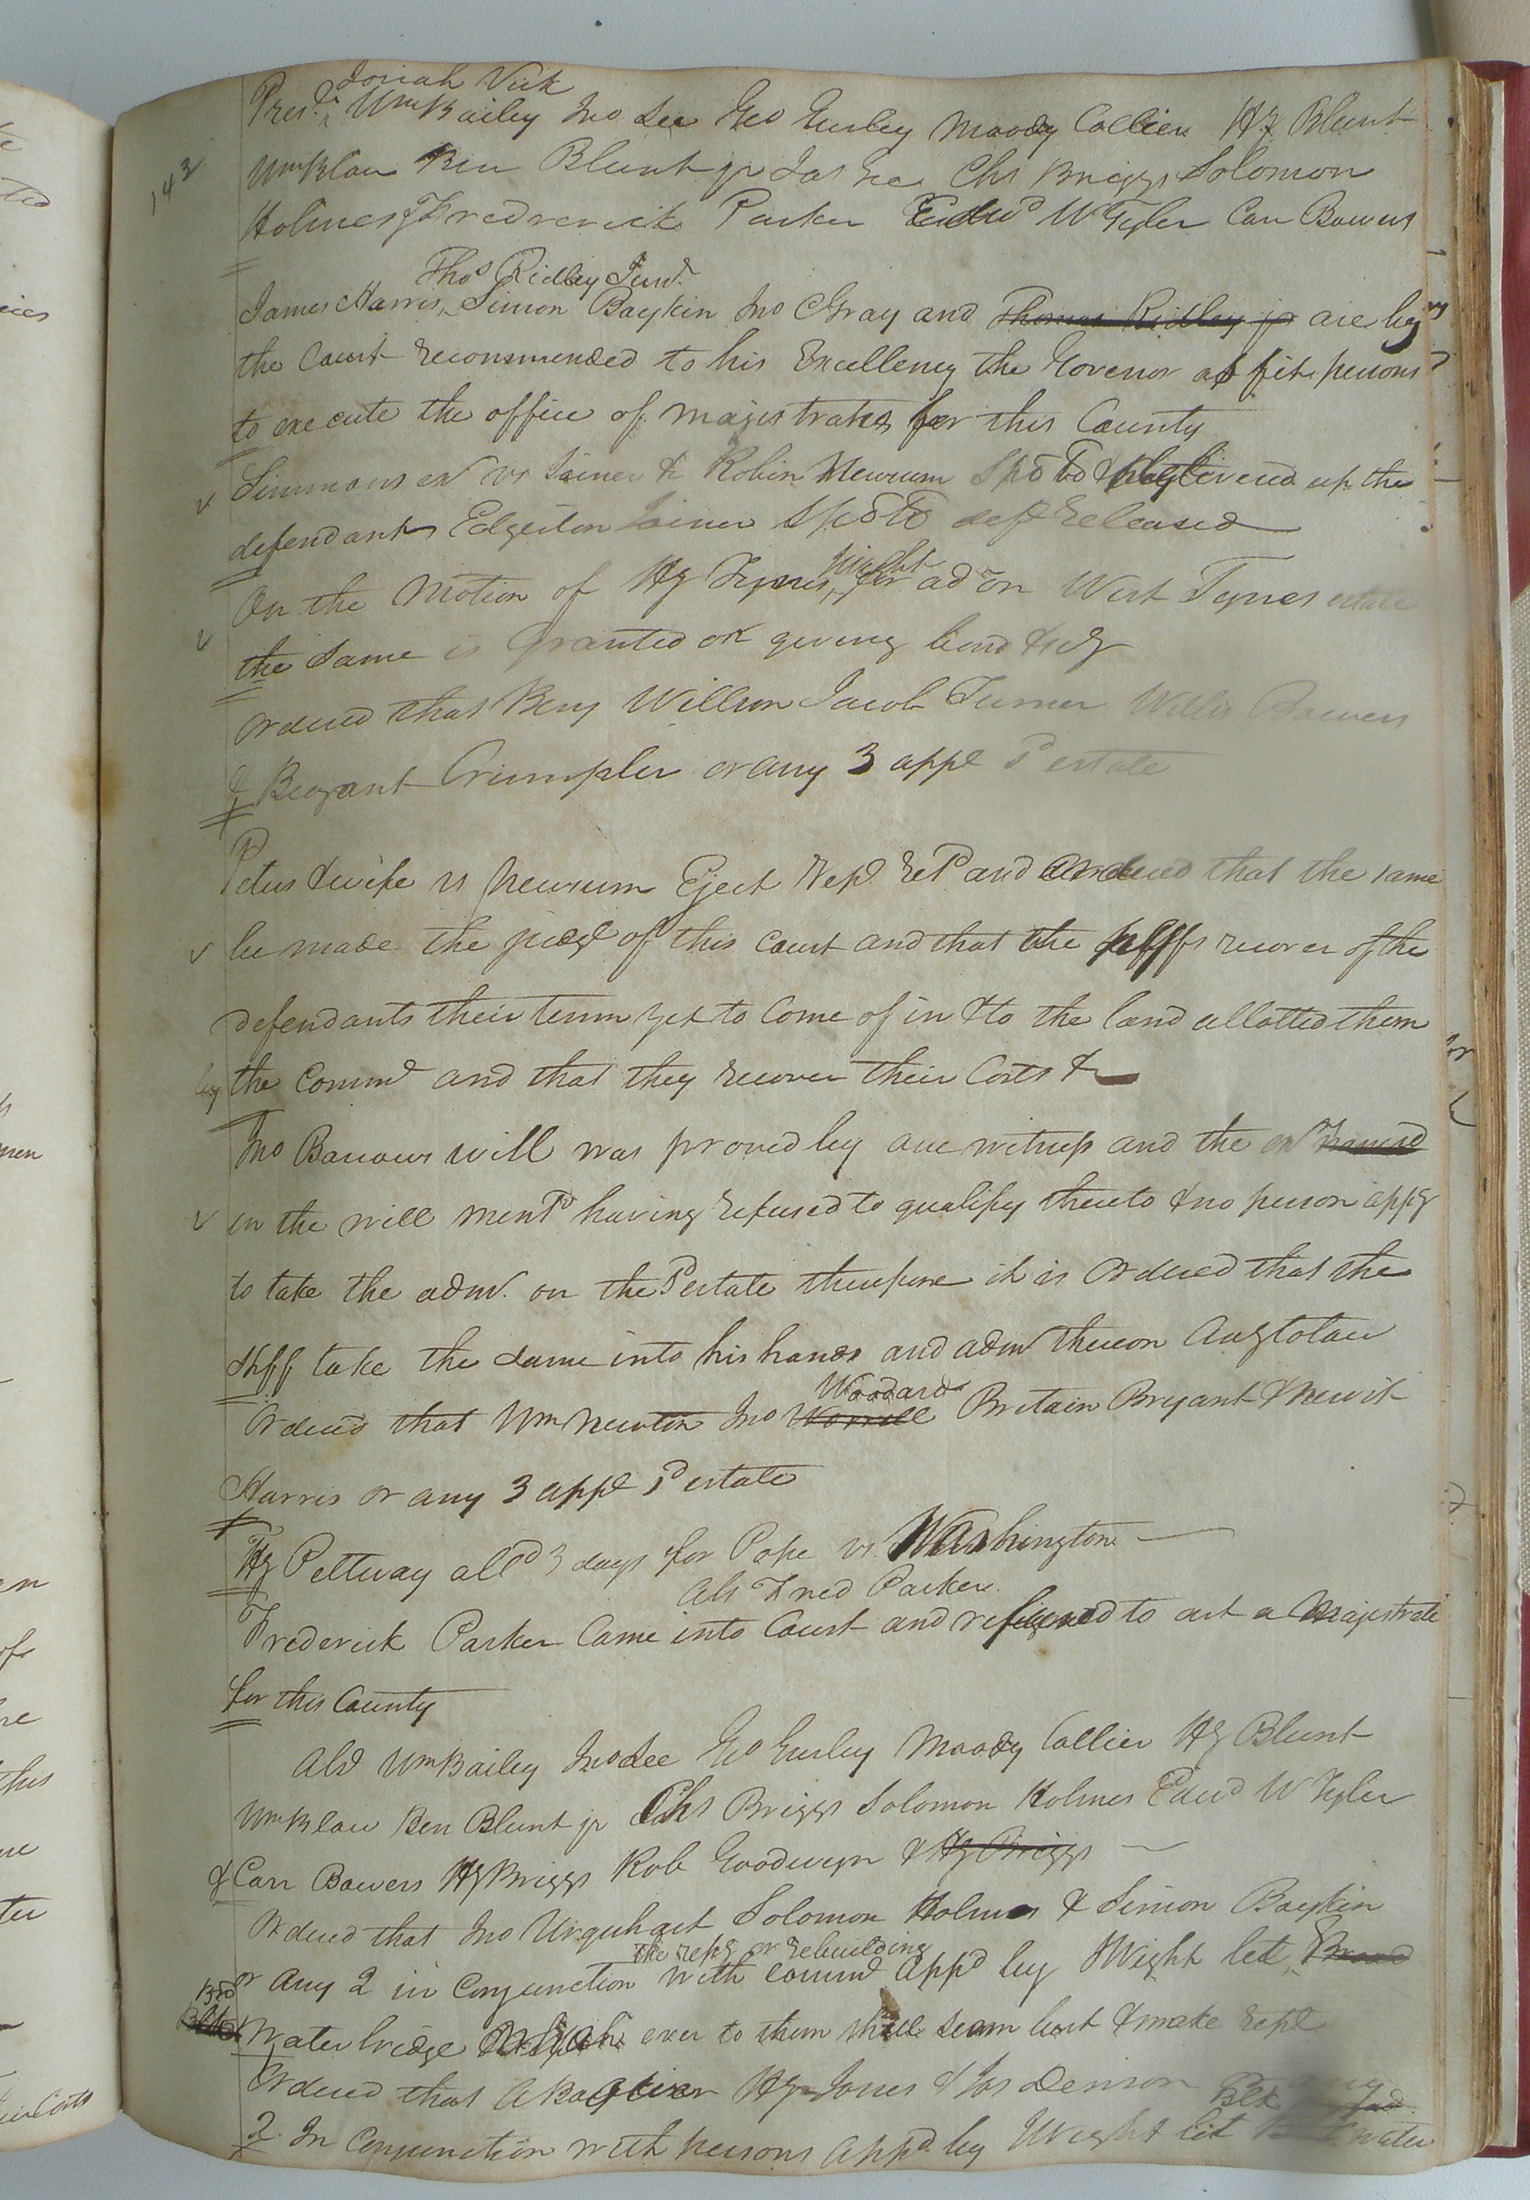 143
Josiah Vick
Presd. Wm Bailey Jno Lee Geo Gurley Moody Collier Hy Blunt
Wm Blow Ben Blunt jr Jas Lee Chs Briggs Solomon
Holmes & Frederick Parker Edwd W Tyler Carr Bowers
Thos Ridley Junr.
James Harris, Simon Boykin Jno Gray and Thomas Ridley jr are by
the Court recommended to his Excellency the Govenor as fit persons
to execute the office of majistrates for this County
Simmons exr vs Joiner & Robin Newsum delivered up the
defendant Edgerton Joiner deft Released
On the Motion of Hy Tynes, for adon West Tynes estate
the same is Granted on giveing bond & scy
Ordered that Benj Willson Jacob Turner Willis Bowers
& Bryant Crumpler or any 3 appe sd estate
Petus & wife vs Newsum Eject Rept. retd and Ordered that the same
be made the judgt of this Court and that the pltffs recover of the
defendants their term yet to Come of in & to the land allotted them
by the Commrs and that they recover their Costs &c
Jno Barrows will was proved by one witness and the exr named
in the will mentd having refused to qualify thereto & no person appg
to take the admr. on the sd estate therefore it is Ordered that the
Shff take the same into his hands and admr thereon Acg to law
Woodard
Ordered that Wm Newton Jno Worrell Britain Bryant & Newit
Harris or any 3 appe sd estate
Hy Pettway alld 3 days for Pope vs Washington
Abs Fred Parker
Frederick Parker Came into Court and refused to act a Majestrate
for this County
Abd Wm Bailey Jno Lee Geo Gurley Moody Collier Hy Blunt
Wm Blow Ben Blunt jr Chs Briggs Solomon Holmes Edwd W Tyler
& Carr Bowers Hy Briggs Rob Goodwyn & Hy Briggs
Ordered that Jno Urquhart Solomon Holmes & Simon Boykin
the repg or rebuilding
or any 2 in Conjunction with commrs appd by I Wight let Broad
Water bridge over to them shall seem best & make rept
Ordered that Hy Jones & Jas Denson
Blk
2 In Conjunction with persons appd. by I Wight let water